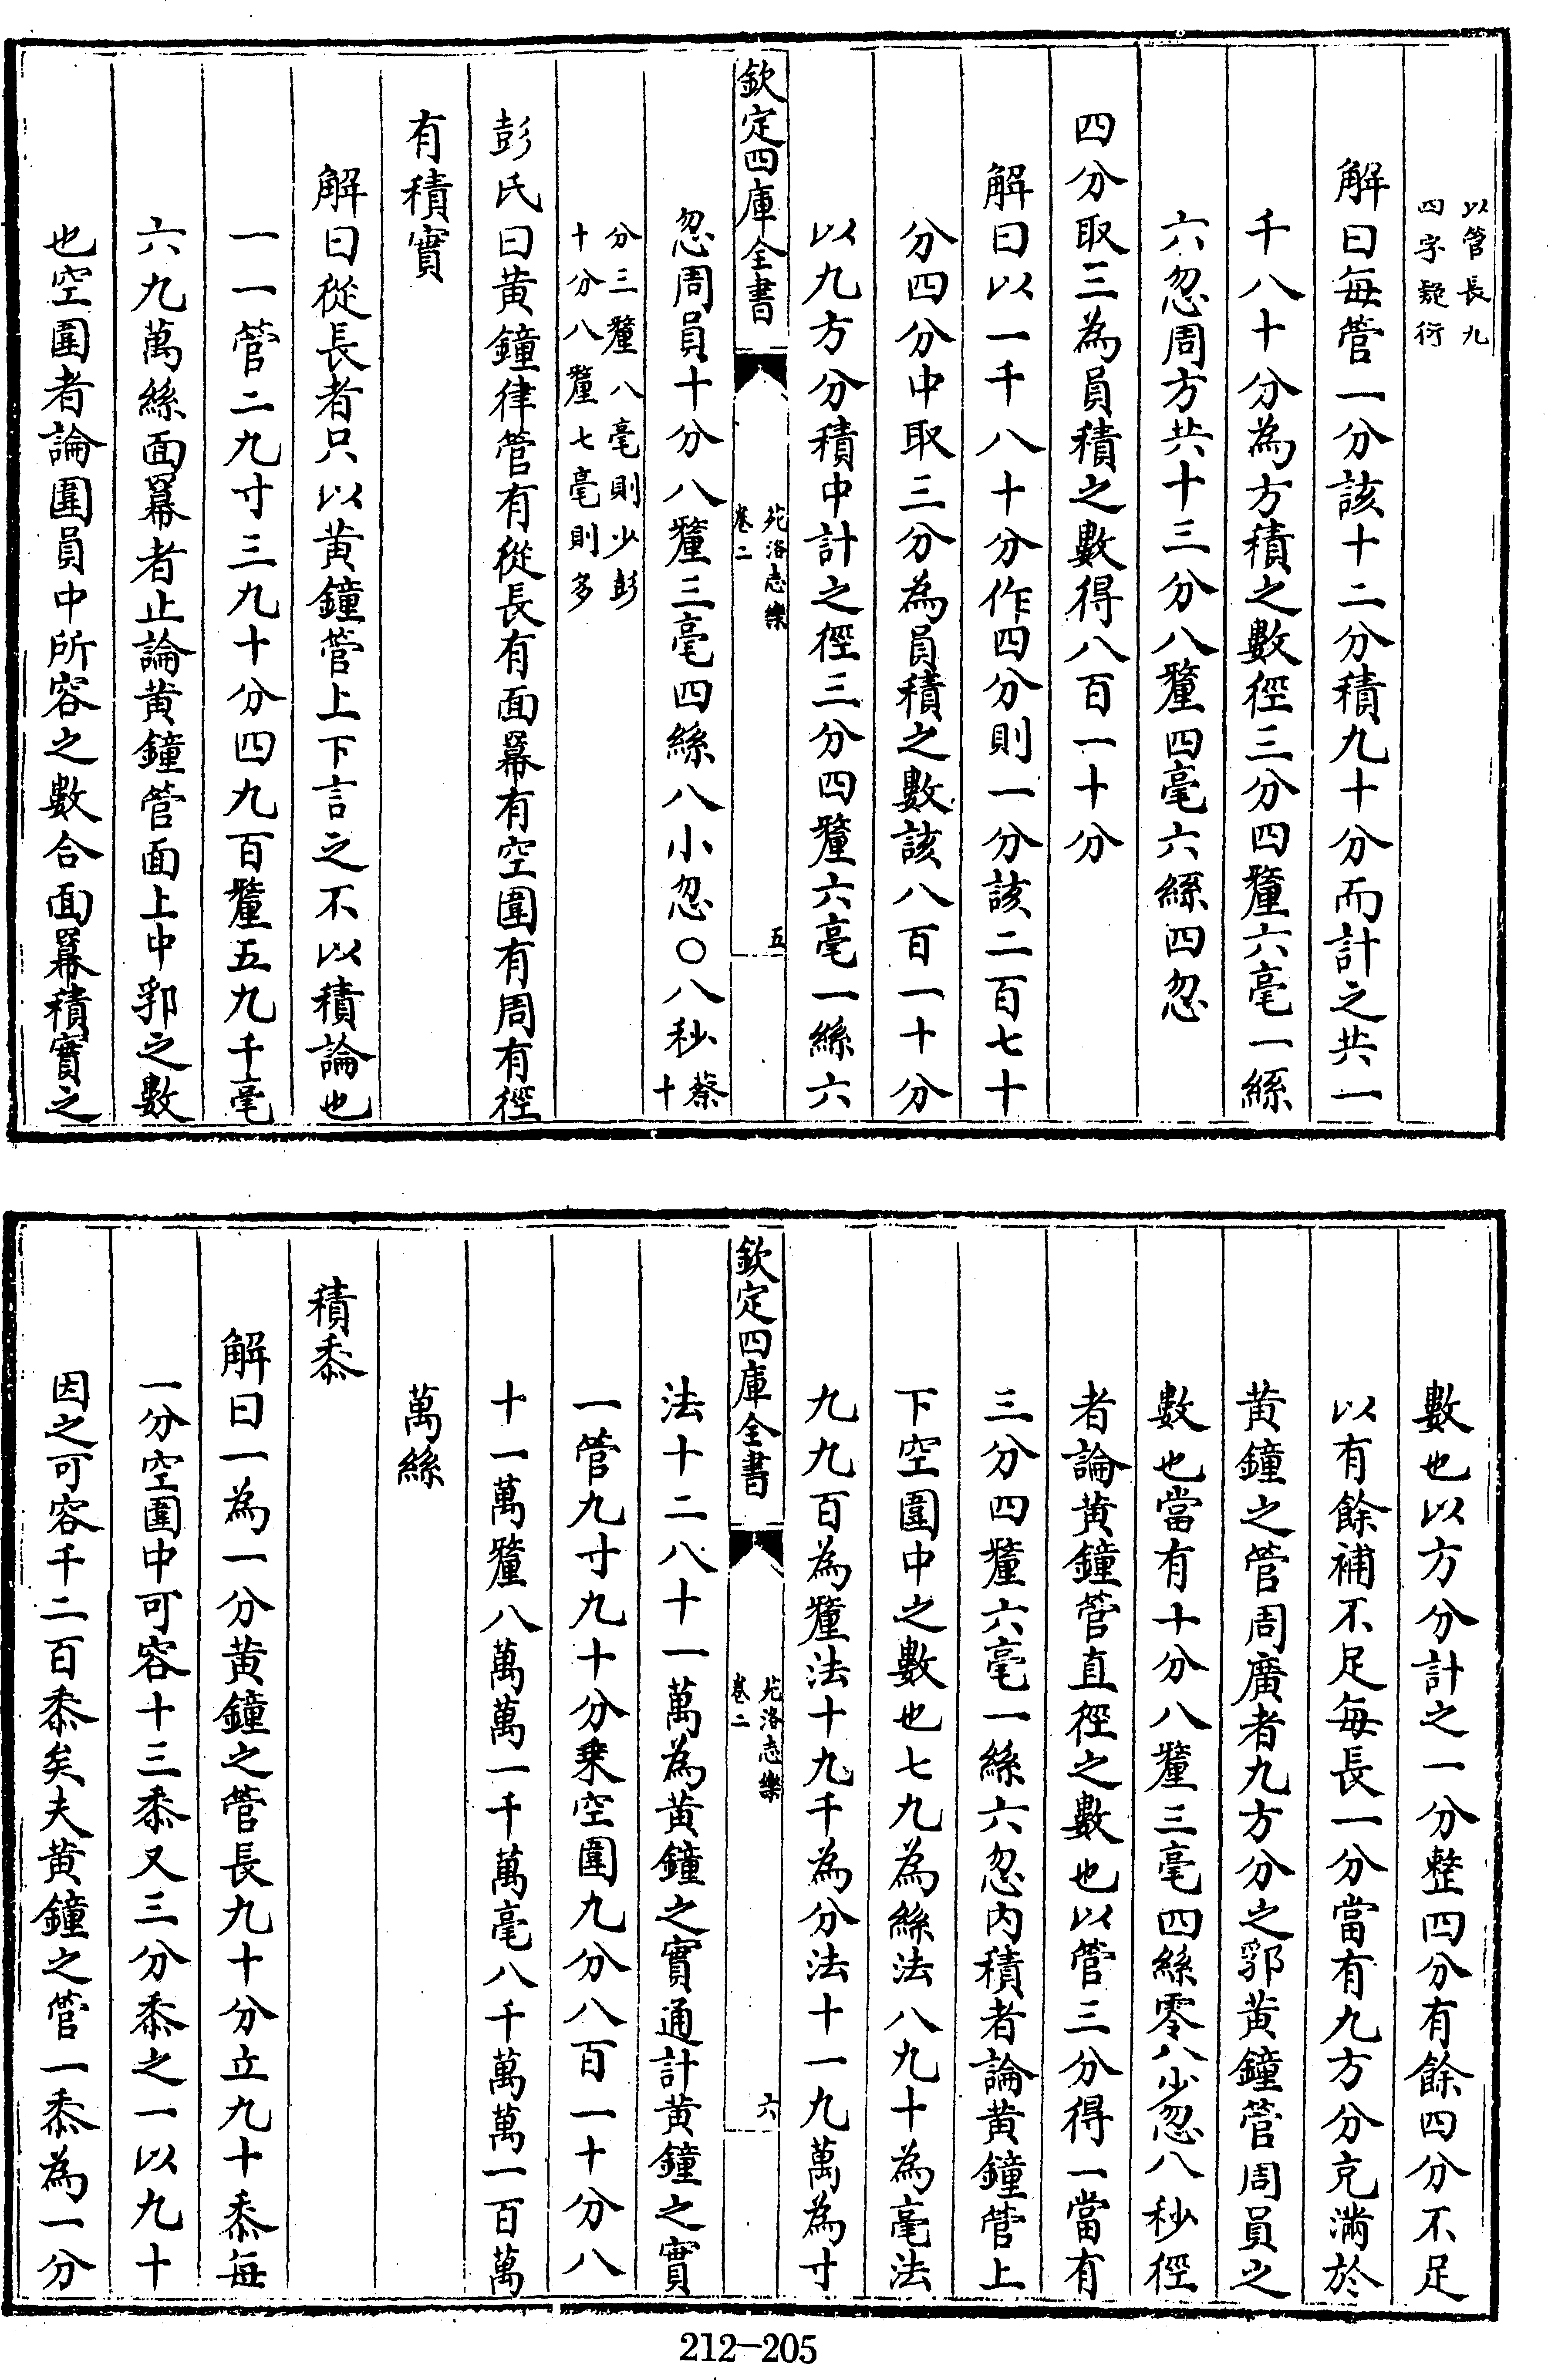 以管長九
四字疑衍
解曰每管一分該十二分積九十分而計之共一
千八十分為方積之數徑三分四釐六毫一絲
六忽周方共十三分八釐四毫六絲四忽
四分取三為員積之數得八百一十分
解曰以一千八十分作四分則一分該二百七十
分四分中取三分為員積之數該八百一十分
以九方分積中計之徑三分四釐六毫一絲六
欽定四庫全書
苑洛志樂
卷二
五
忽周員十分八釐三毫四絲八小忽〇八秒蔡十
分三釐八毫則少彭
十分八釐七毫則多
彭氏曰黃鐘律管有從長有面冪有空圍有周有徑
有積實
解曰從長者只以黃鐘管上下言之不以積論也
一一管二九寸三九十分四九百釐五九千毫
六九萬絲面冪者止論黃鐘管面上中郛之數
也空圍者論圍員中所容之數合面冪積實之
數也以方分計之一分整四分有餘四分不足
以有餘補不足每長一分當有九方分充滿於
黃鐘之管周廣者九方分之郛黃鐘管周員之
數也當有十分八釐三毫四絲零八小忽八秒徑
者論黃鐘管直徑之數也以管三分得一當有
三分四釐六毫一絲六忽內積者論黃鐘管上
下空圍中之數也七九為絲法八九十為毫法
九九百為釐法十九千為分法十一九萬為寸
欽定四庫全書
苑洛志樂
卷二
六
法十二八十一萬為黃鐘之實通計黃鐘之實
一管九寸九十分乗空圍九分八百一十分八
十一萬釐八萬萬一千萬毫八千萬萬一百萬
萬絲
積黍
解曰一為一分黃鐘之管長九十分立九十黍每
一分空圍中可容十三黍又三分黍之一以九十
因之可容千二百黍矣夫黃鐘之管一黍為一分
212-205